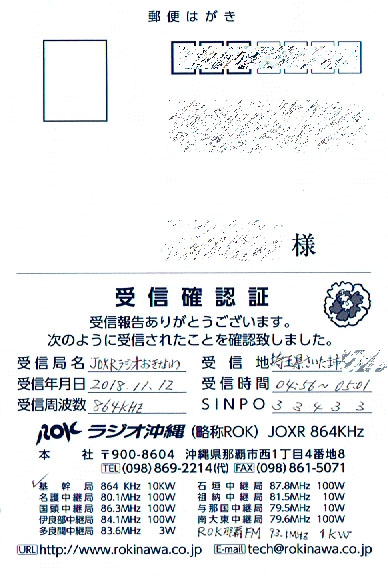 郵便はがき
様
受信確認証
受信報告ありがとうございます。
次のように受信されたことを確認致しました。
受信局名 JOXRラジオおきなわ 受信地 埼玉県さいたま市
受信年月日 2018.11.12 受信時間 04:56〜05:01
受信周波数 864KHz SINPO 3 3 4 3 3
ROK ラジオ沖縄 (略称ROK) JOXR 864KHz
本社 〒900-8604 沖縄県那覇市西1丁目4番地8
TEL (098)869-2214(代) FAX (098)861-5071
基幹局 864 KHz 10KW 石垣中継局 87.8MHz 100W
名護中継局 80.1MHz 100W 祖納中継局 81.5MHz 10W
国頭中継局 86.3MHz 100W 与那国中継局 79.5MHz 10W
伊良部中継局 84.1MHz 100W 南大東中継局 79.6MHz 100W
多良間中継局 83.6MHz 3W ROK那覇FM 93.1MHz 1KW
URL http://www.rokinawa.co.jp E-mail tech@rokinawa.co.jp